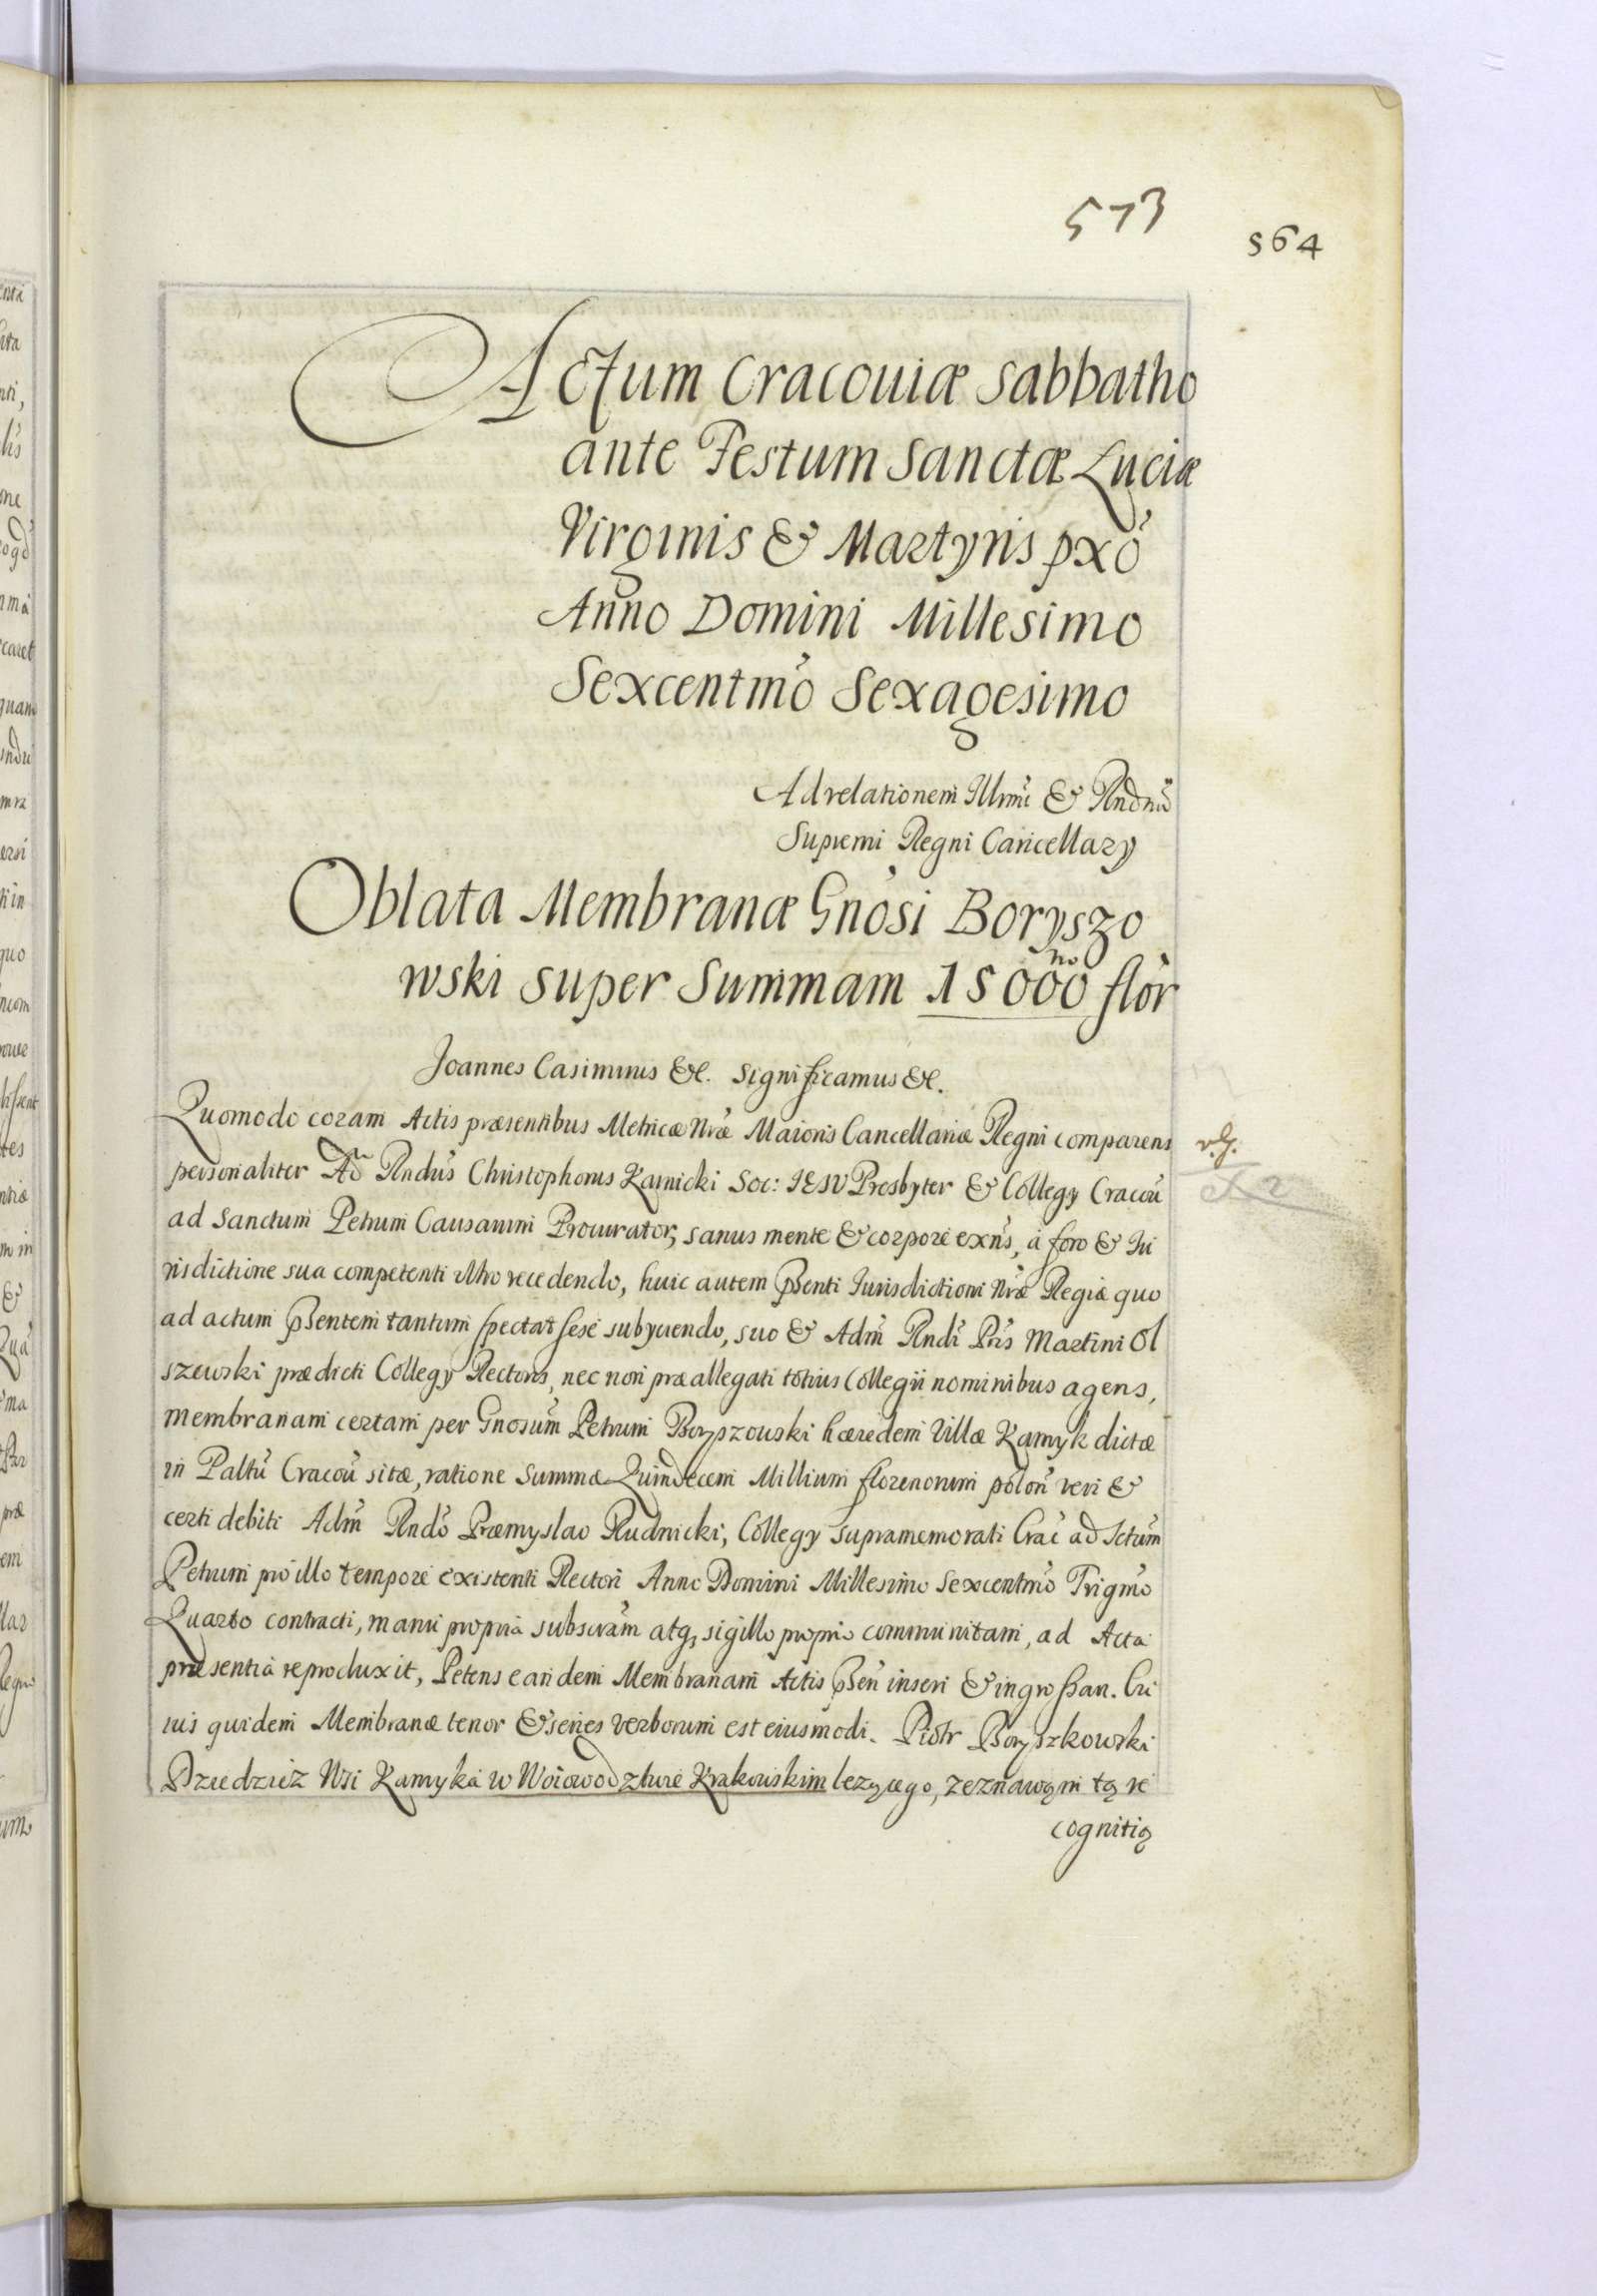 573
564
Actum Cracouiæ Sabbatho
ante Festum Sanctæ Luciæ
Virginis & Martyris pxõ
Anno Domini Millesimo
Sexcentmõ Sexagesimo
Ad relationem Illmi & Rndmi
Supremi Regni Cancellary
Oblata Membranæ Gnosi Boryszo
wski super Summam 15000 flor
Joannes Casimirus &c. Significamus &c.
Quomodo coram Actis præsentibus Metricæ Nræ Maioris Cancellariæ Regni comparens
personaliter Adm Rndus Christophorus Karnicki Soc: IESV Presbyter & Collegy Cracou
ad Sanctum Petrum Causarum Procurator, sanus mente & corpore exns, a foro & Iu
risdictione sua competenti ultro recedendo, huic autem Psenti Iurisdictioni Nræ Regiæ quo
ad actum Psentem tantum spectat sese subyciendo, suo & Adm Rndi Pris Martini Ol
szewski prædicti Collegy Rectoris, nec non præallegati totius Collegii nominibus agens,
membranam certam per Gnosum Petrum Boryszouski hæredem Villæ Kamyk dictæ
in Paltu Cracou sitæ, ratione Summæ Quindecem Millium florenorum polon veri &
certi debiti Adm Rndo Præmyslao Rudnicki, Collegy supramemorati Crac ad Sctum
Petrum pro illo tempore existenti Rectori Anno Domini Millesimo Sexcentmo Trigmo
Quarto contracti, manu propria subscram atq, sigillo proprio communitam, ad Acta
præsentia reproduxit, Petens eandem Membranam Actis Psen inseri & ingrossari. Cu
ius quidem Membranæ tenor & series verborum est eiusmodi. Piotr Boryszkowski
Dziedzicz Wsi Kamyka w Woiewodztwie Krakowskim lezącego, zeznawąm tą re
cognitią